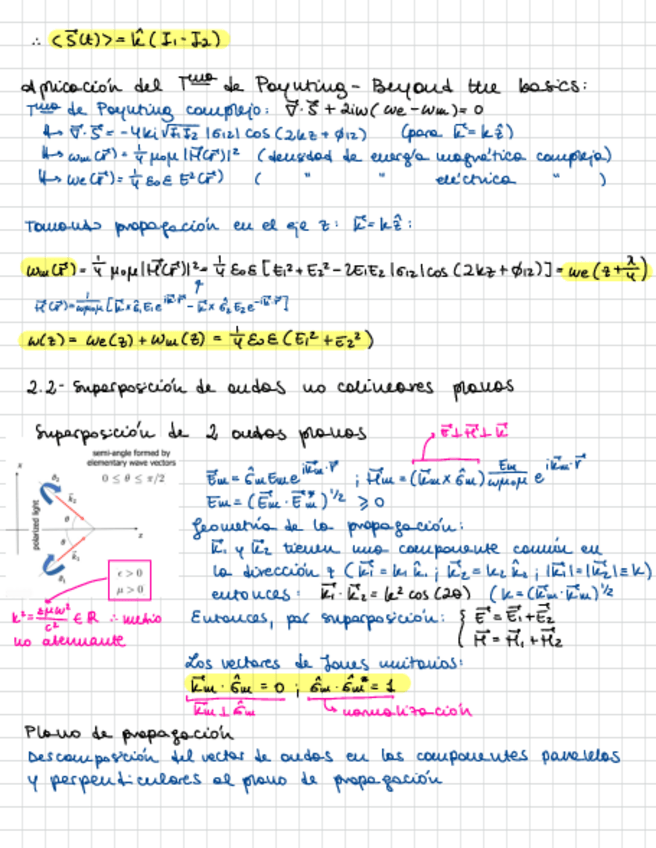 ∴ <S⃗(t)> = k̂ (I₁ - I₂)
Aplicación del Tma de Poynting - Beyond the basics:
Tma de Poynting complejo: ∇⃗·S⃗ + 2iω(we - wm) = 0
↳ ∇⃗·S⃗ = -4ki√I₁I₂ |σ12| cos(2kz + ϕ12) (para k⃗ = kẑ)
↳ wm(r⃗) = 1/4 μ0μ |H⃗(r⃗)|² (densidad de energía magnética compleja)
↳ we(r⃗) = 1/4 ε0ε E²(r⃗) ( " " eléctrica " )
Tomando propagación en el eje z: k⃗ = kẑ:
wm(r⃗) = 1/4 μ0μ |H⃗(r⃗)|² = 1/4 ε0ε [E1² + E2² - 2E1E2 |σ12| cos(2kz + ϕ12)] = we(z + λ/4)
H⃗(r⃗) = 1/ωμ0μ [k⃗ x ô1 E1 e^{ik⃗·r⃗} - k⃗ x ô2 E2 e^{-ik⃗·r⃗}]
w(z) = we(z) + wm(z) = 1/4 ε0ε (E1² + E2²)
2.2- Superposición de ondas no colineares planas
Superposición de 2 ondas planas
E⃗⊥H⃗⊥k⃗
semi-angle formed by
elementary wave vectors
0 ≤ θ ≤ π/2
x
polarized light
k⃗2
θ
θ
k⃗1
z
ε > 0
μ > 0
k² = εμω²/c² ∈ R ∴ medio
no atenuante
E⃗m = ômEm e^{ik⃗m·r⃗} ; H⃗m = (k⃗m x ôm) Em/ωμ0μ e^{ik⃗m·r⃗}
Em = (E⃗m · E⃗m*)^1/2 ≥ 0
Geometría de la propagación:
k⃗1 y k⃗2 tienen una componente común en
la dirección z (k⃗1 = k1 k̂1 ; k⃗2 = k2 k̂2 ; |k⃗1| = |k⃗2| ≡ k)
entonces: k⃗1 · k⃗2 = k² cos(2θ) (k = (k⃗m · k⃗m)^1/2
Entonces, por superposición: { E⃗ = E⃗1 + E⃗2
H⃗ = H⃗1 + H⃗2
Los vectores de Jones unitarios:
k⃗m · ôm = 0 ; ôm · ôm* = 1
k⃗m ⊥ ôm ↳ normalización
Plano de propagación
Descomposición del vector de ondas en las componentes paralelas
y perpendiculares al plano de propagación